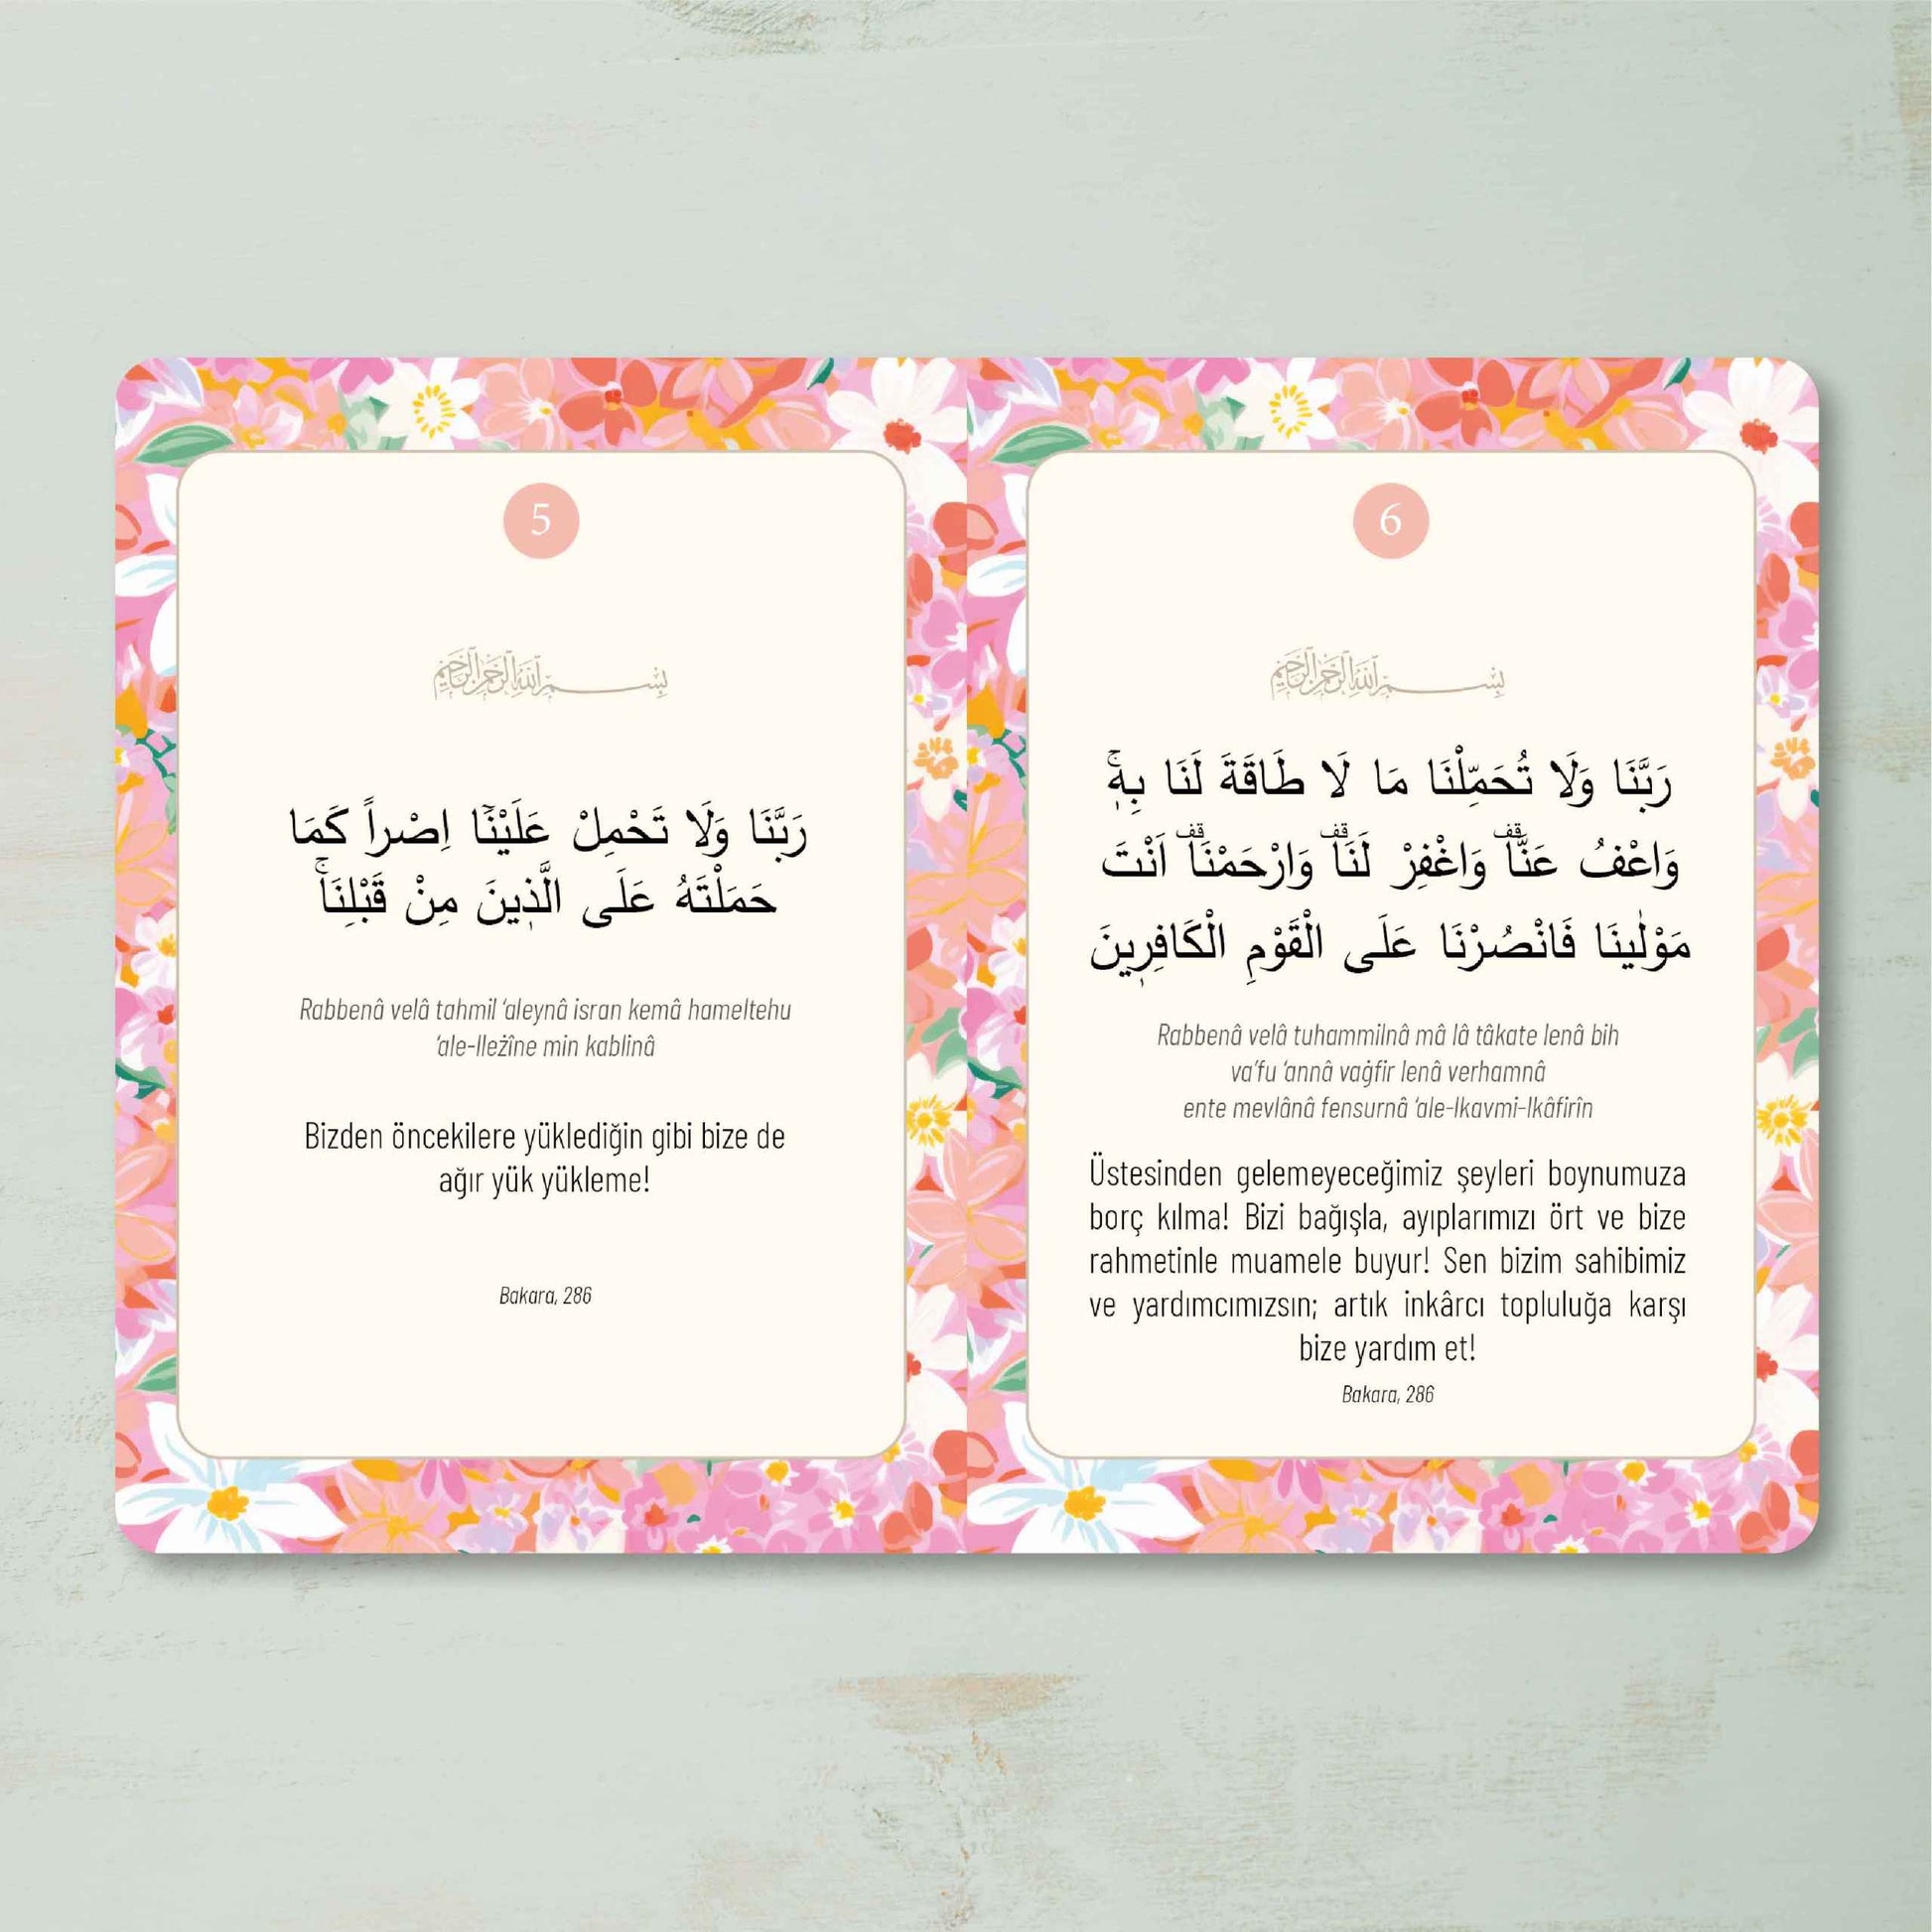 5
بِسْمِ اللهِ الرَّحْمٰنِ الرَّحِيمِ
رَبَّنَا وَلَا تَحْمِلْ عَلَيْنَٓا اِصْراً كَمَا
حَمَلْتَهُ عَلَى الَّذ۪ينَ مِنْ قَبْلِنَاۚ
Rabbenâ velâ tahmil ‘aleynâ isran kemâ hameltehu
‘ale-lležîne min kablinâ
Bizden öncekilere yüklediğin gibi bize de
ağır yük yükleme!
Bakara, 286
6
بِسْمِ اللهِ الرَّحْمٰنِ الرَّحِيمِ
رَبَّنَا وَلَا تُحَمِّلْنَا مَا لَا طَاقَةَ لَنَا بِه۪ۚ
وَاعْفُ عَنَّا۠ وَاغْفِرْ لَنَا۠ وَارْحَمْنَا۠ اَنْتَ
مَوْلٰينَا فَانْصُرْنَا عَلَى الْقَوْمِ الْكَافِر۪ينَ
Rabbenâ velâ tuhammilnâ mâ lâ tâkate lenâ bih
va’fu ‘annâ vaġfir lenâ verhamnâ
ente mevlânâ fensurnâ ‘ale-lkavmi-lkâfirîn
Üstesinden gelemeyeceğimiz şeyleri boynumuza
borç kılma! Bizi bağışla, ayıplarımızı ört ve bize
rahmetinle muamele buyur! Sen bizim sahibimiz
ve yardımcımızsın; artık inkârcı topluluğa karşı
bize yardım et!
Bakara, 286